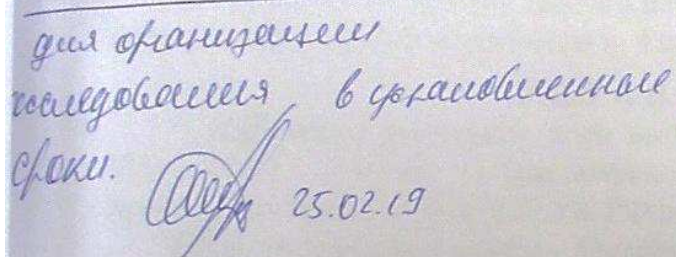 для организации
исследования в установленные
сроки.
25.02.19